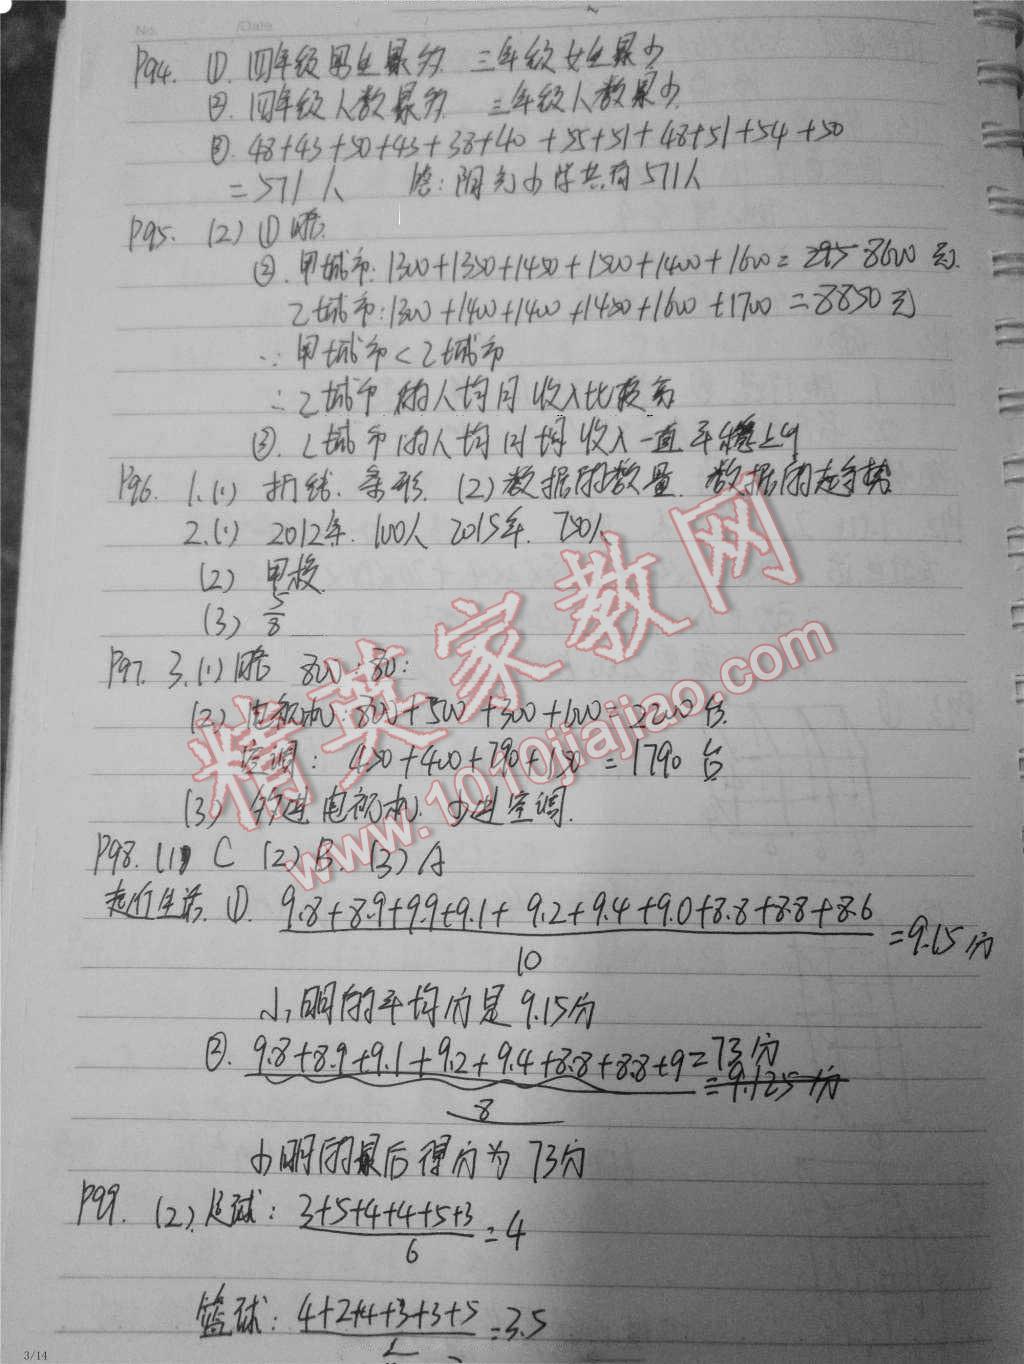 No.
Date
P94. ①. 四年级男生最多 三年级女生最少
②. 四年级人数最多. 三年级人数最少.
③. 48+43+50+43+38+40+55+51+48+51+54+50
=571人 答:阳光小学共有571人
P95. (2) ①略.
②. 甲城市:1300+1350+1450+1500+1400+1600=8600元.
乙城市:1300+1400+1400+1450+1600+1700=8850元
∵甲城市<乙城市
∴乙城市的人均月收入比较高
③. 乙城市的人均月均收入一直平稳上升
P96. 1.(1) 折线. 条形. (2)数据的数量. 数据的趋势
2.(1) 2012年. 100人 2015年. 750人
(2) 甲校.
(3) 5/8
P97. 3.(1)略 800:80:
(2) 电视机:800+500+300+600=2200台.
空调: 450+400+790+150=1790台
(3) 多进电视机. 少进空调.
P98. (1) C (2) B. (3) A
走行生活. ①. 9.8+8.9+9.9+9.1+9.2+9.4+9.0+8.8+8.8+8.6 =9.15分
10
小明的平均分是9.15分
②. 9.8+8.9+9.1+9.2+9.4+8.8+8.8+9=73分
=9.125分
8
小明的最后得分为73分
P99. (2). 足球: 3+5+4+4+5+3 =4
6
篮球: 4+2+4+3+3+5 =3.5
精英家教网
www.1010jiajiao.com
3/14